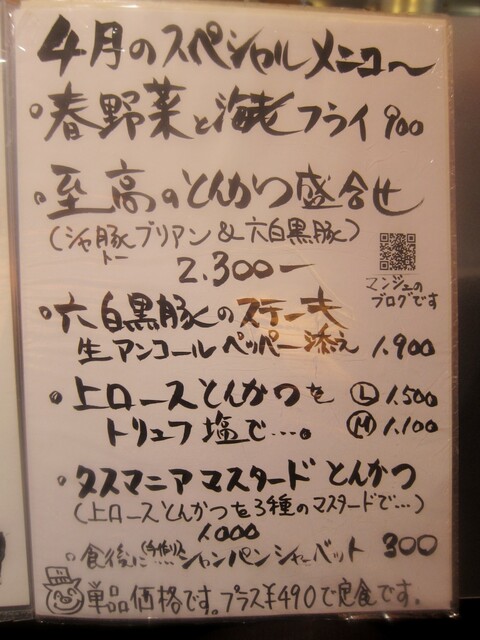 4月のスペシャルメニュ〜
・春野菜と海老フライ 900
・至高のとんかつ盛合せ
(シャ豚ブリアン&六白黒豚)
トー
2.300ー
マンジェの
ブログです
・六白黒豚のステーキ
生アンコールペッパー添え 1.900
・上ロースとんかつを Ⓛ 1.500
トリュフ塩で…。 Ⓜ 1.100
・タスマニアマスタードとんかつ
(上ロースとんかつを3種のマスタードで…)
1.000
・食後に シャンパンシャーベット 300
単品価格です。プラス¥490で定食です。